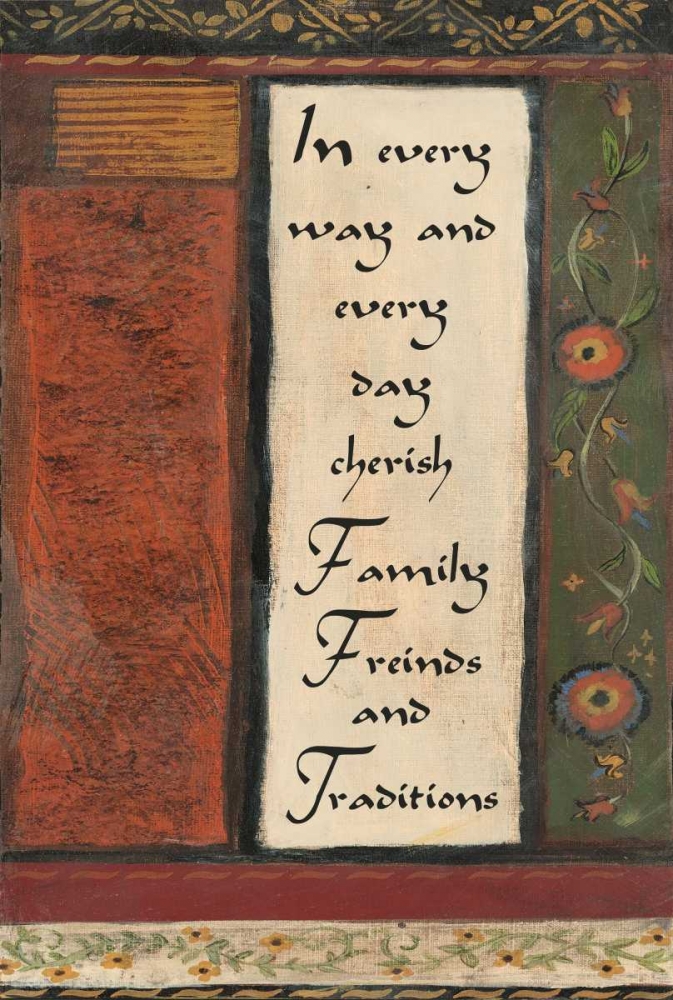 In every
way and
every
day
cherish
Family
Freinds
and
Traditions